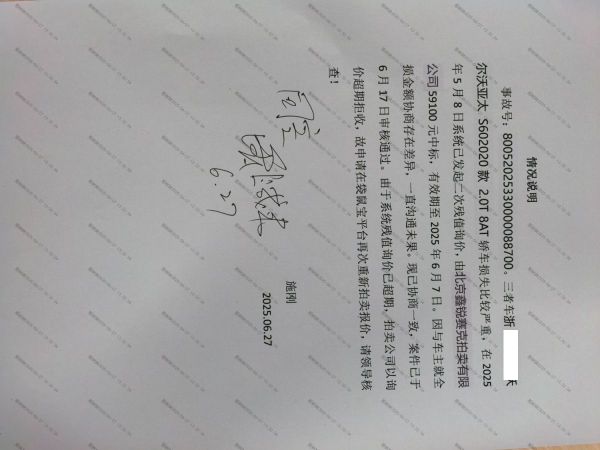 情况说明
事故号：800520253300000088700。三者车浙
沃
尔沃亚太 S602020 款 2.0T 8AT 轿车损失比较严重，在 2025
年 5 月 8 日系统已发起二次残值询价，由北京鑫锐赛克拍卖有限
公司 59100 元中标，有效期至 2025 年 6 月 7 日。因与车主就全
损金额协商存在差异，一直沟通未果。现已协商一致，案件已于
6 月 17 日审核通过。由于系统残值询价已超期，拍卖公司以询
价超期拒收，故申请在袋鼠宝平台再次重新拍卖报价，请领导核
查！
施刚
2025.06.27
同意
6.27